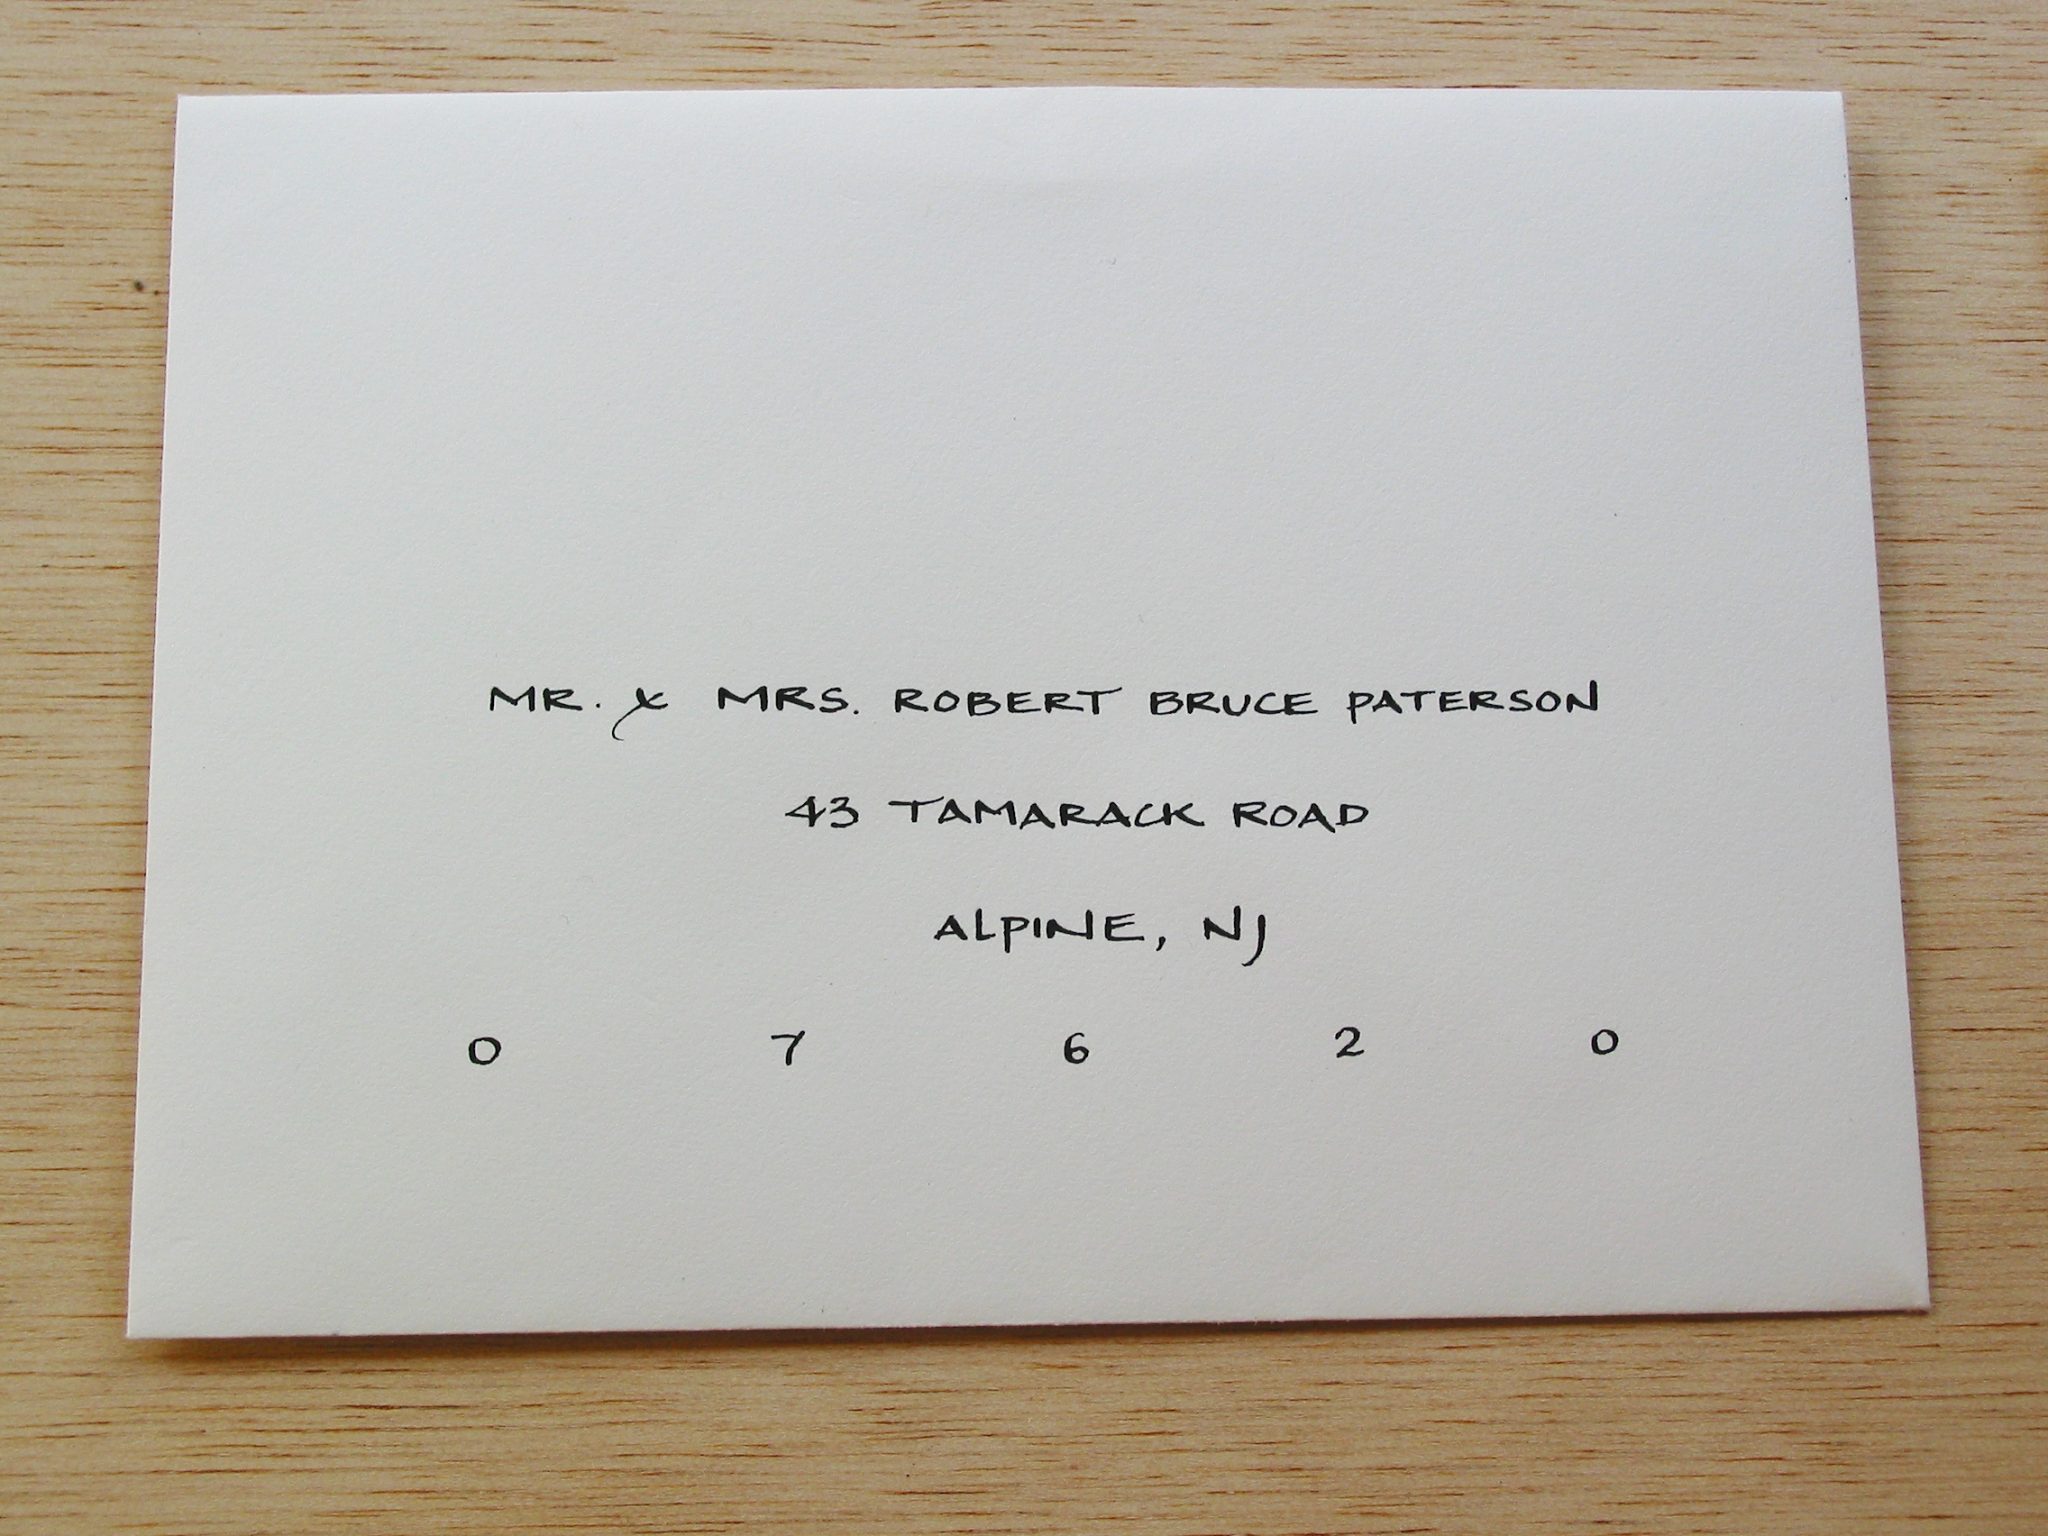 MR. & MRS. ROBERT BRUCE PATERSON
43 TAMARACK ROAD
ALPINE, NJ
0 7 6 2 0